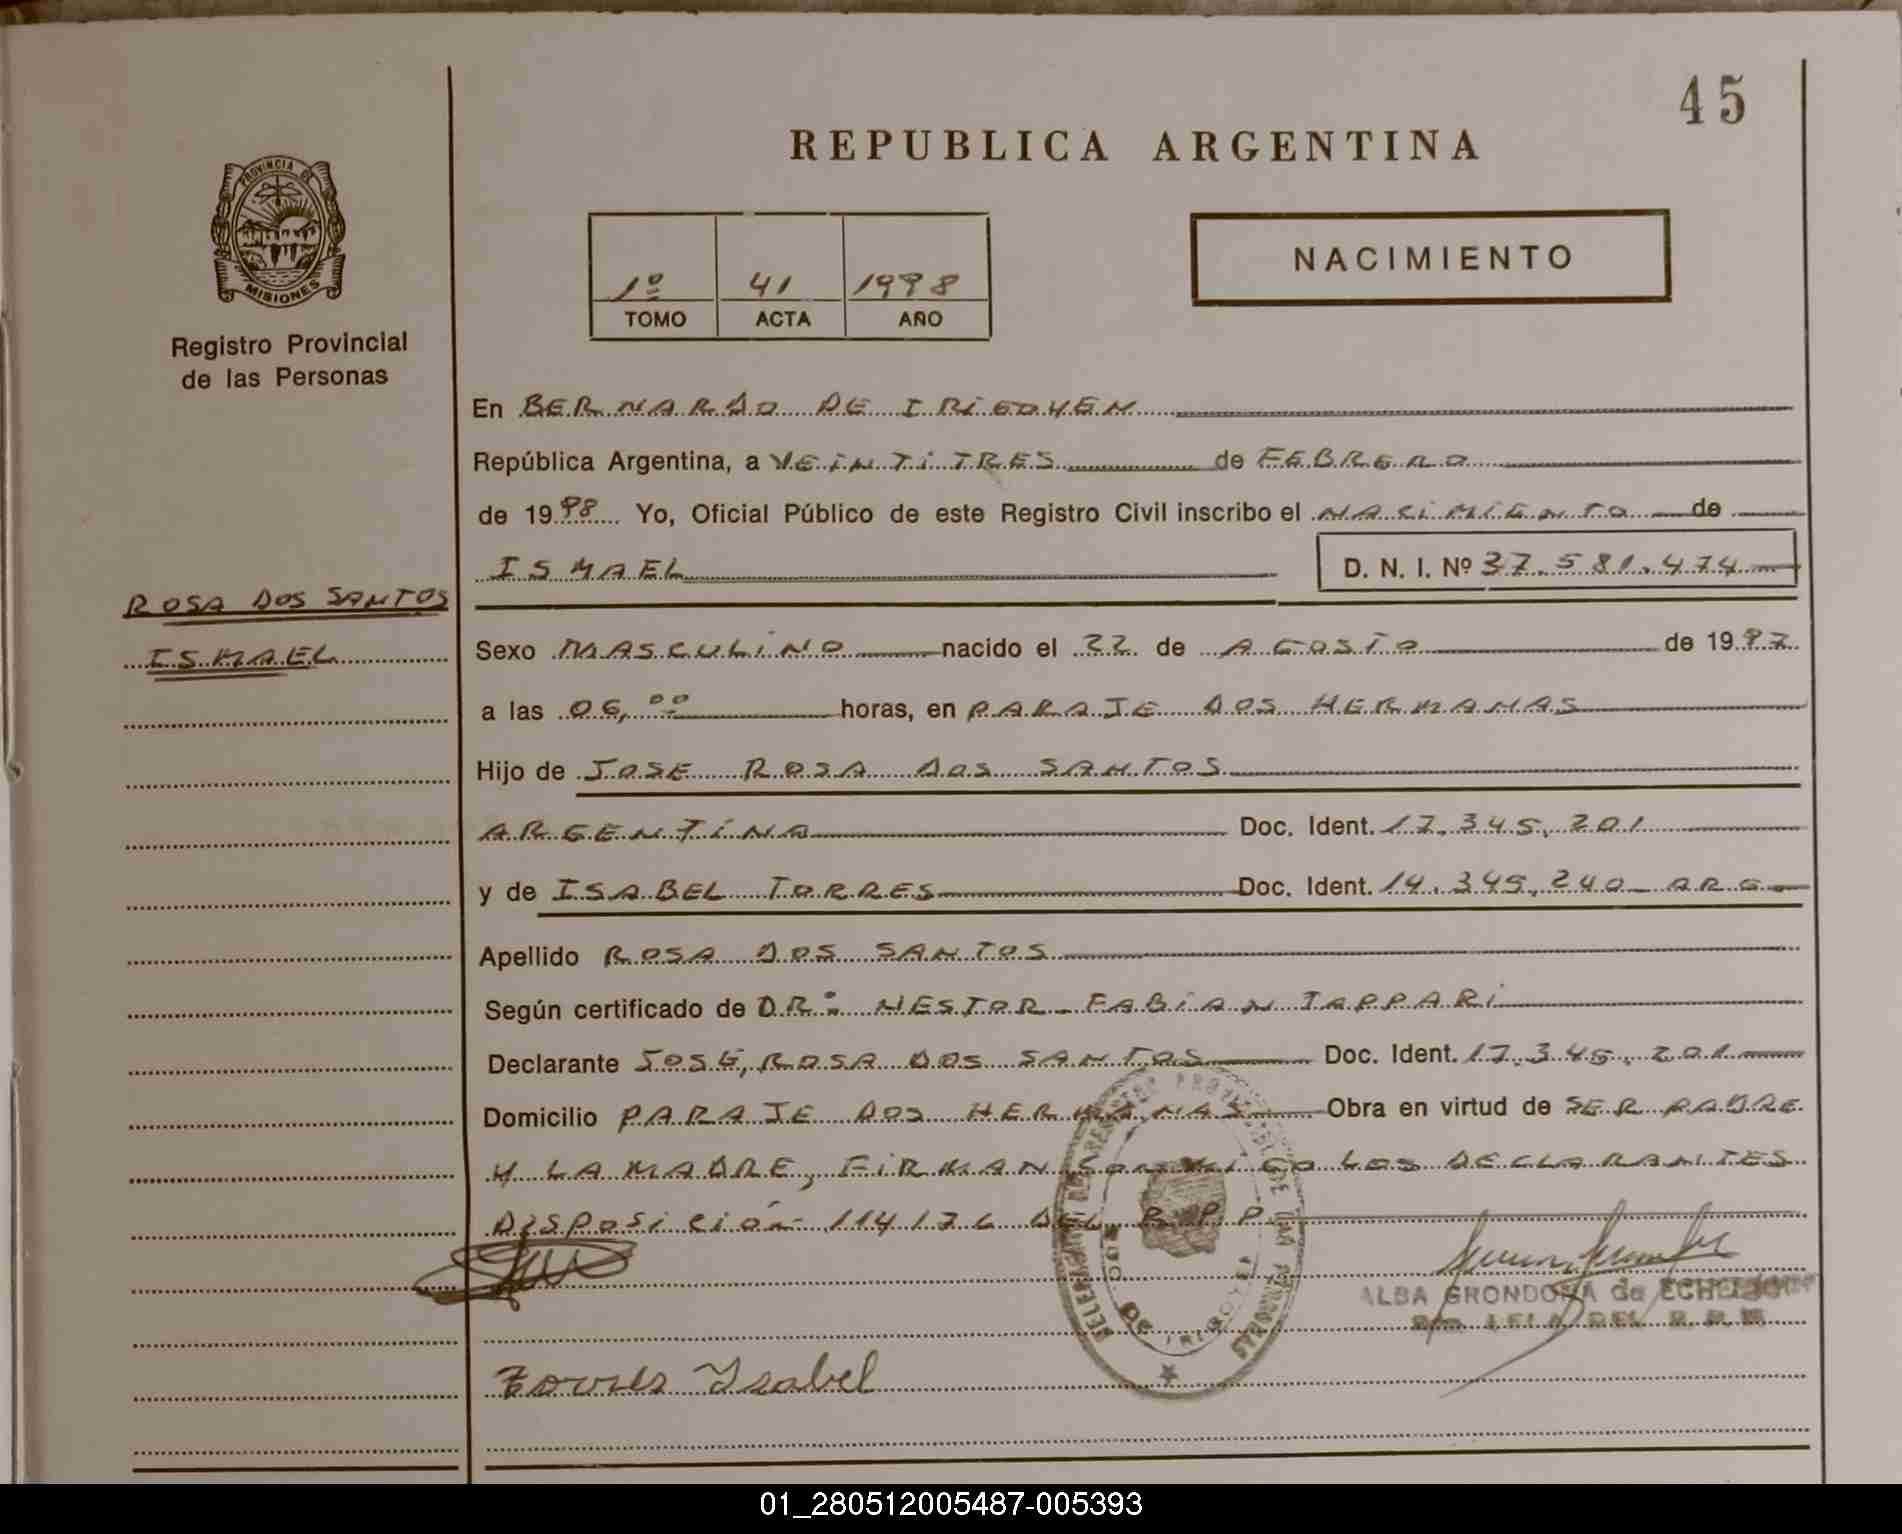 45
REPUBLICA ARGENTINA
PROVINCIA DE
MISIONES
Registro Provincial
de las Personas
1º 41 1998
TOMO ACTA AÑO
NACIMIENTO
En BERNARDO DE IRIGOYEN
República Argentina, a VEINTITRES de FEBRERO
de 1998 Yo, Oficial Público de este Registro Civil inscribo el NACIMIENTO de
ISMAEL D. N. I. Nº 37.581.474
ROSA DOS SANTOS
ISMAEL
Sexo MASCULINO nacido el 22 de AGOSTO de 1997
a las 06,00 horas, en PARAJE DOS HERMANAS
Hijo de JOSE ROSA DOS SANTOS
ARGENTINA Doc. Ident. 17.345.201
y de ISABEL TORRES Doc. Ident. 14.345.240 ARG
Apellido ROSA DOS SANTOS
Según certificado de DR: NESTOR FABIAN TAPPARI
Declarante JOSE, ROSA DOS SANTOS Doc. Ident. 17.345.201
Domicilio PARAJE DOS HERMANAS Obra en virtud de SER PADRE
Y LA MADRE, FIRMAN CONMIGO LOS DECLARANTES
DISPOSICIÓN 114/76 DEL R.P.P.
ALBA GRONDONA de
DE IRIGOYEN
Torres Ysabel
01_280512005487-005393